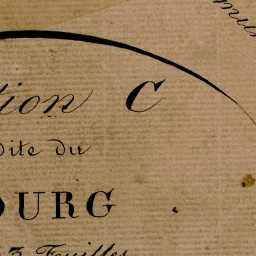 tion C
dite du
OURG
3 Feuilles